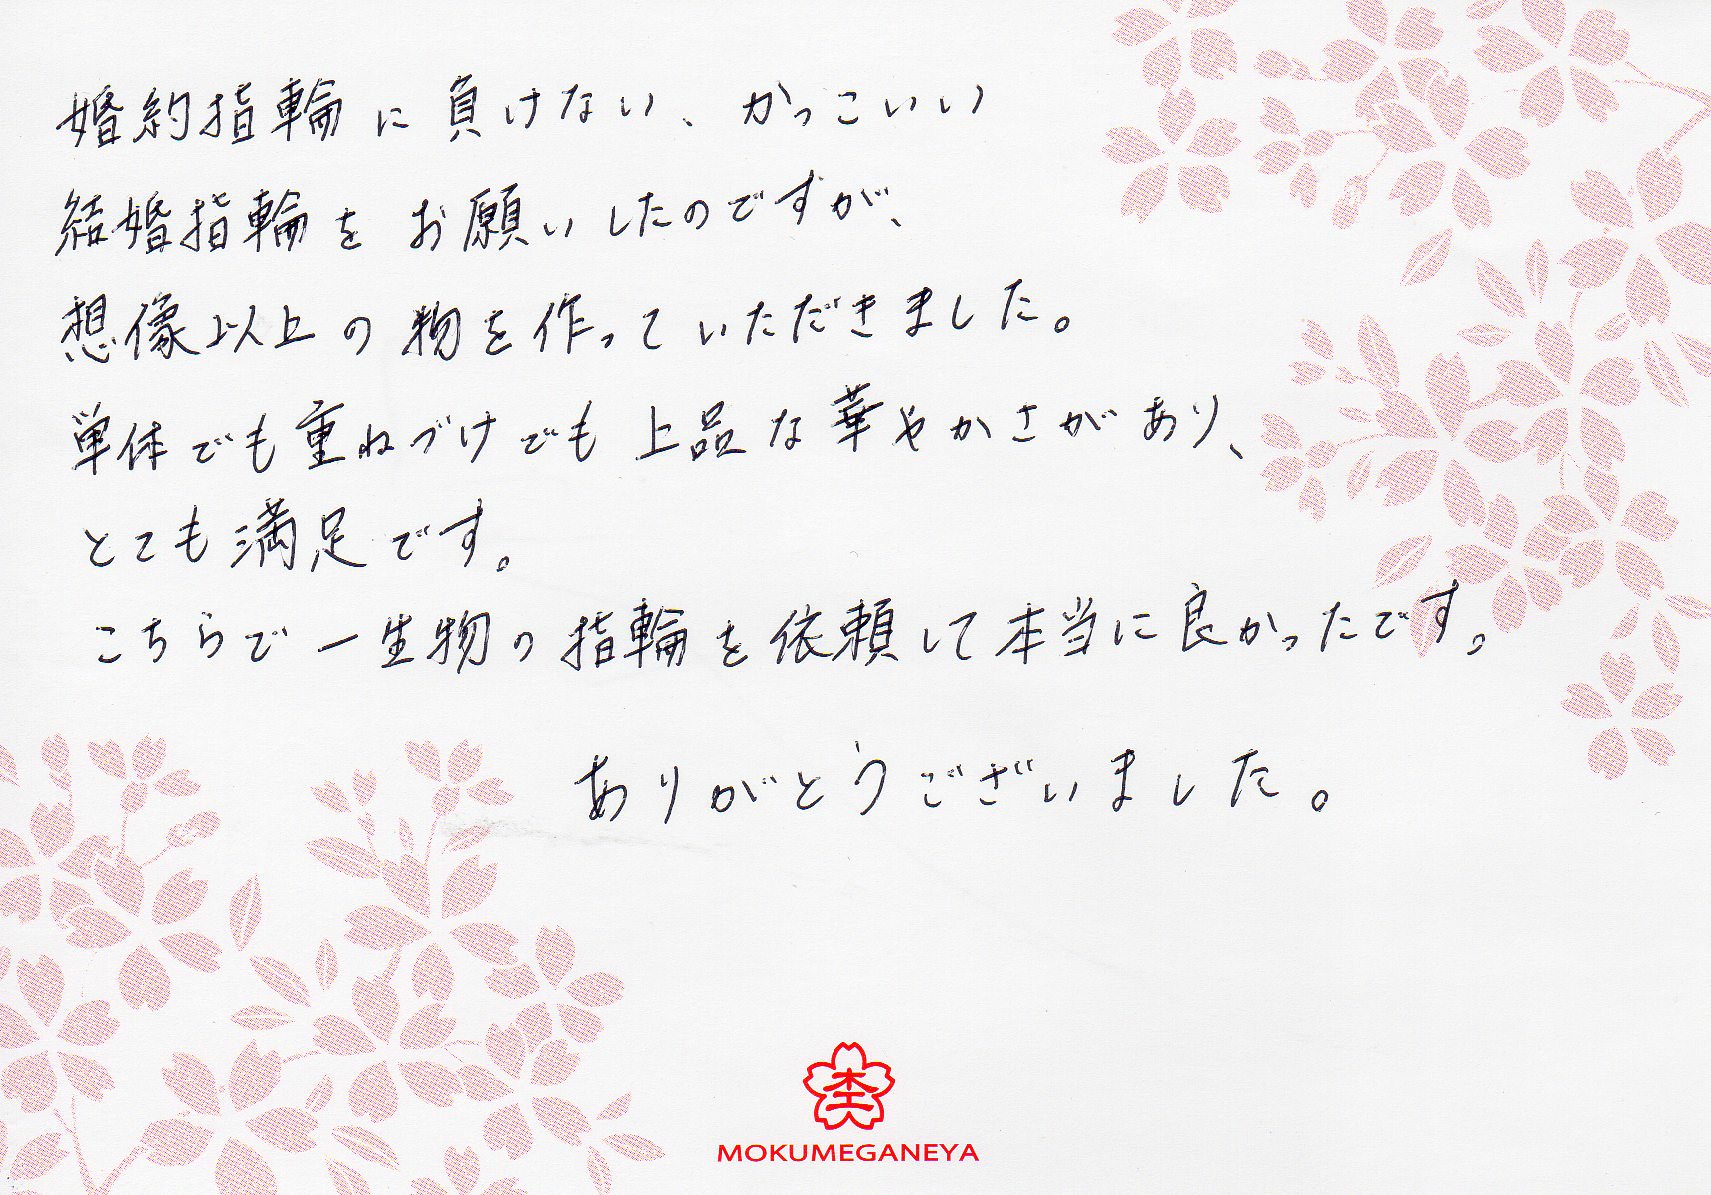 婚約指輪に負けない、かっこいい
結婚指輪をお願いしたのですが、
想像以上の物を作っていただきました。
単体でも重ねづけでも上品な華やかさがあり、
とても満足です。
こちらで一生物の指輪を依頼して本当に良かったです。
ありがとうございました。
杢
MOKUMEGANEYA